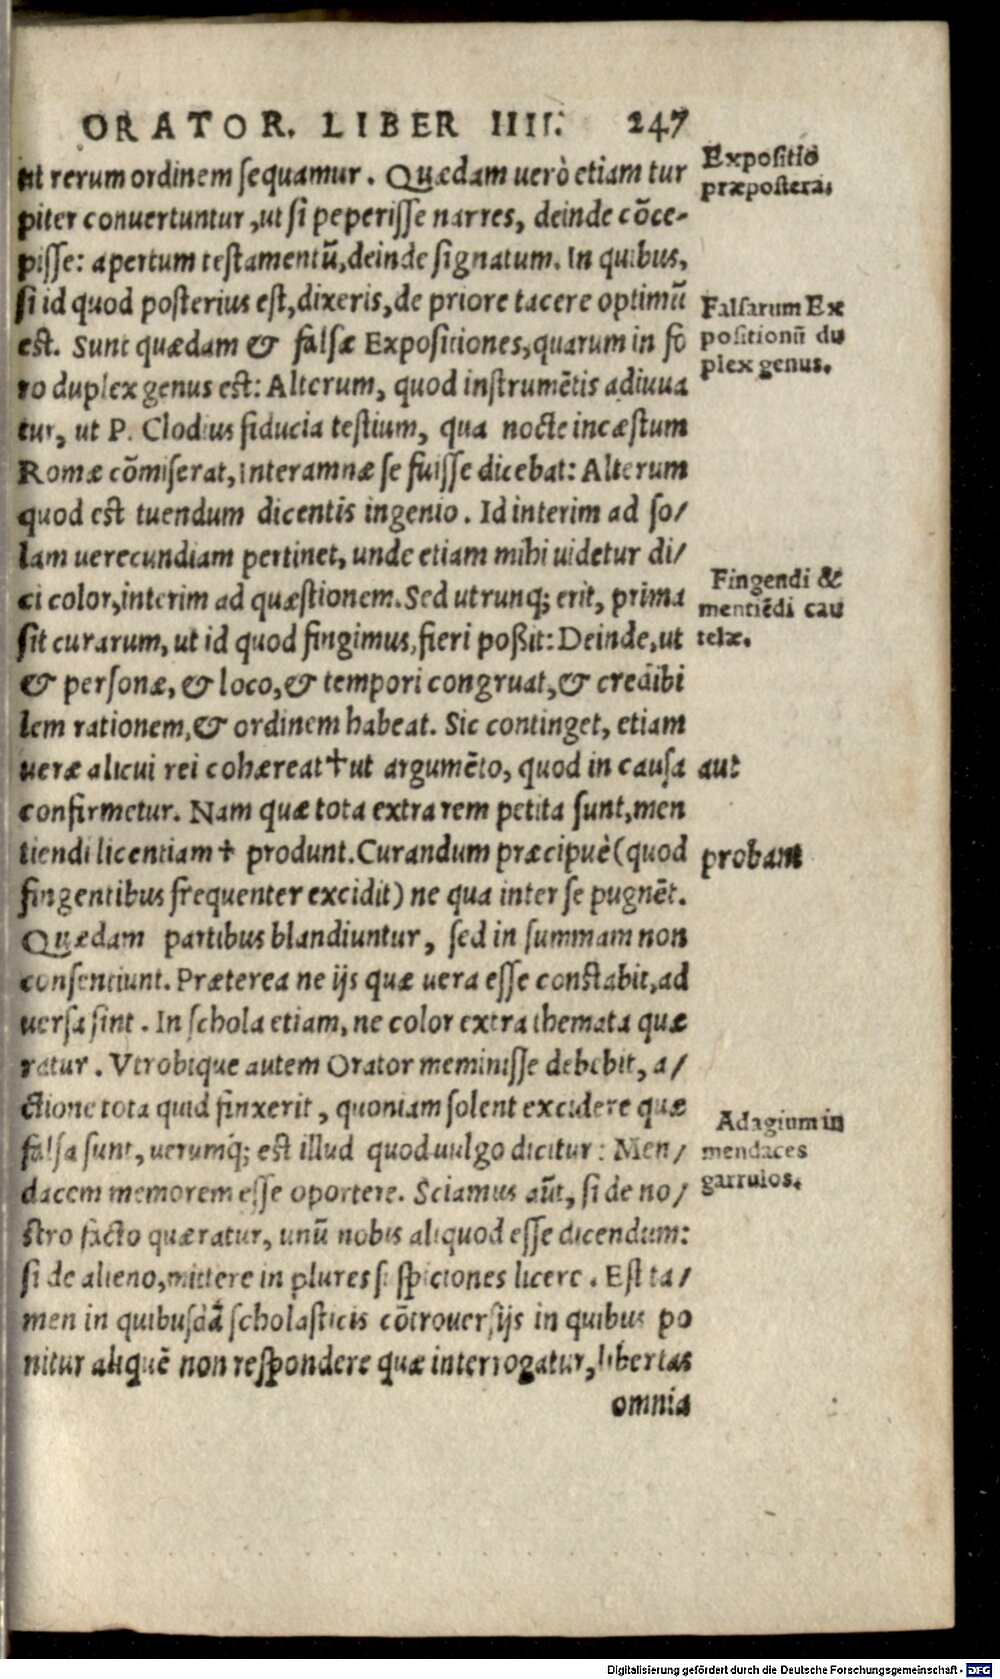 ORATOR. LIBER IIII. 247
ut rerum ordinem sequamur. Quædam uerò etiam tur
piter conuertuntur, ut si peperisse narres, deinde cõce-
pisse: apertum testamentũ, deinde signatum. In quibus,
si id quod posterius est, dixeris, de priore tacere optimũ
est. Sunt quædam & falsæ Expositiones, quarum in fo
ro duplex genus est: Alterum, quod instrumẽtis adiuua
tur, ut P. Clodius fiducia testium, qua nocte incæstum
Romæ cõmiserat, Interamnæ se fuisse dicebat: Alterum
quod est tuendum dicentis ingenio. Id interim ad so/
lam uerecundiam pertinet, unde etiam mihi uidetur di/
ci color, interim ad quæstionem. Sed utrunq; erit, prima
sit curarum, ut id quod fingimus, fieri poßit: Deinde, ut
& personæ, & loco, & tempori congruat, & credibi
lem rationem, & ordinem habeat. Sic continget, etiam
ueræ alicui rei cohæreat✝ut argumẽto, quod in causa
confirmetur. Nam quæ tota extra rem petita sunt, men
tiendi licentiam✝ produnt. Curandum præcipuè (quod
fingentibus frequenter excidit) ne qua inter se pugnẽt.
Quædam partibus blandiuntur, sed in summam non
consentiunt. Præterea ne ijs quæ uera esse constabit, ad
uersa sint. In schola etiam, ne color extra themata quæ
ratur. Vtrobique autem Orator meminisse debebit, a/
ctione tota quid finxerit, quoniam solent excidere quæ
falsa sunt, uerumq́; est illud quod uulgo dicitur: Men/
dacem memorem esse oportere. Sciamus aũt, si de no/
stro facto quæratur, unũ nobis aliquod esse dicendum:
si de alieno, mittere in plures suspiciones licere. Est ta/
men in quibusdã scholasticis cõtrouersijs in quibus po
nitur aliquẽ non respondere quæ interrogatur, libertas
omnia
Expositio
præpostera.
Falsarum Ex
positionũ du
plex genus.
Fingendi &
mentiẽdi cau
telæ.
aut
probant
Adagium in
mendaces
garrulos.
Digitalisierung gefördert durch die Deutsche Forschungsgemeinschaft - DFG